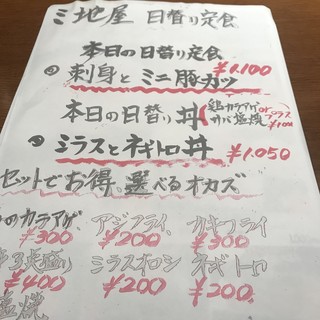 地屋 日替り定食
本日の日替り定食
刺身とミニ豚カツ ¥1,100
本日の日替り丼
ミラスとネギトロ丼 ¥1,050
セットでお得、選べるオカズ
のカラアゲ アジフライ カキフライ
¥300 ¥200 ¥300
盛り ミラスオロシ ネギトロ
¥400 ¥200 ¥200
塩焼